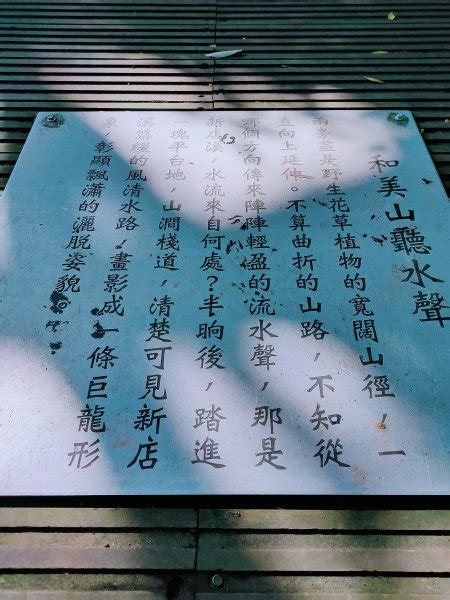 和美山聽水聲
有素盡是野生花草植物的寬闊山徑，一
直向上延伸。不算曲折的山路，不知從
哪個方向傳來陣陣輕盈的流水聲，那是
新店溪，水流來自何處？半晌後，踏進
一塊平台地，山澗棧道，清楚可見新店
溪悠緩的風清水路，畫影成一條巨龍形
象，彰顯飄瀟的灑脫姿貌。